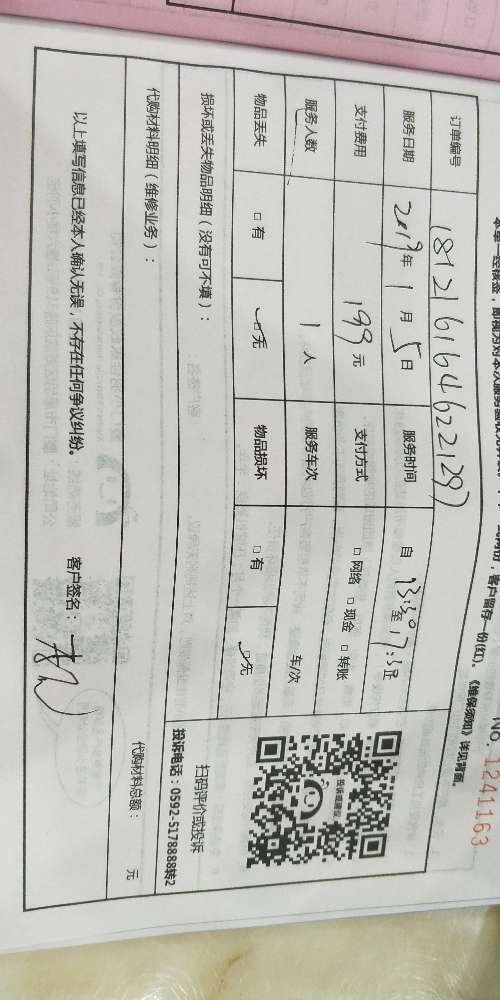 NO. 1241163
客户留存一份(红)。《维保须知》详见背面。
订单编号 1812161646221297
服务日期 2019年1月5日 服务时间 自13:30至17:30止
支付费用 199元 支付方式 □网络 □现金 □转账
服务人数 1人 服务车次 车/次
物品丢失 □有 □无 物品损坏 □有 □无
损坏或丢失物品明细(没有可不填):
扫码评价或投诉
投诉电话:0592-5178888转2
投诉或建议
代购材料明细(维修业务): 代购材料总额: 元
以上填写信息已经本人确认无误,不存在任何争议纠纷。 客户签名: